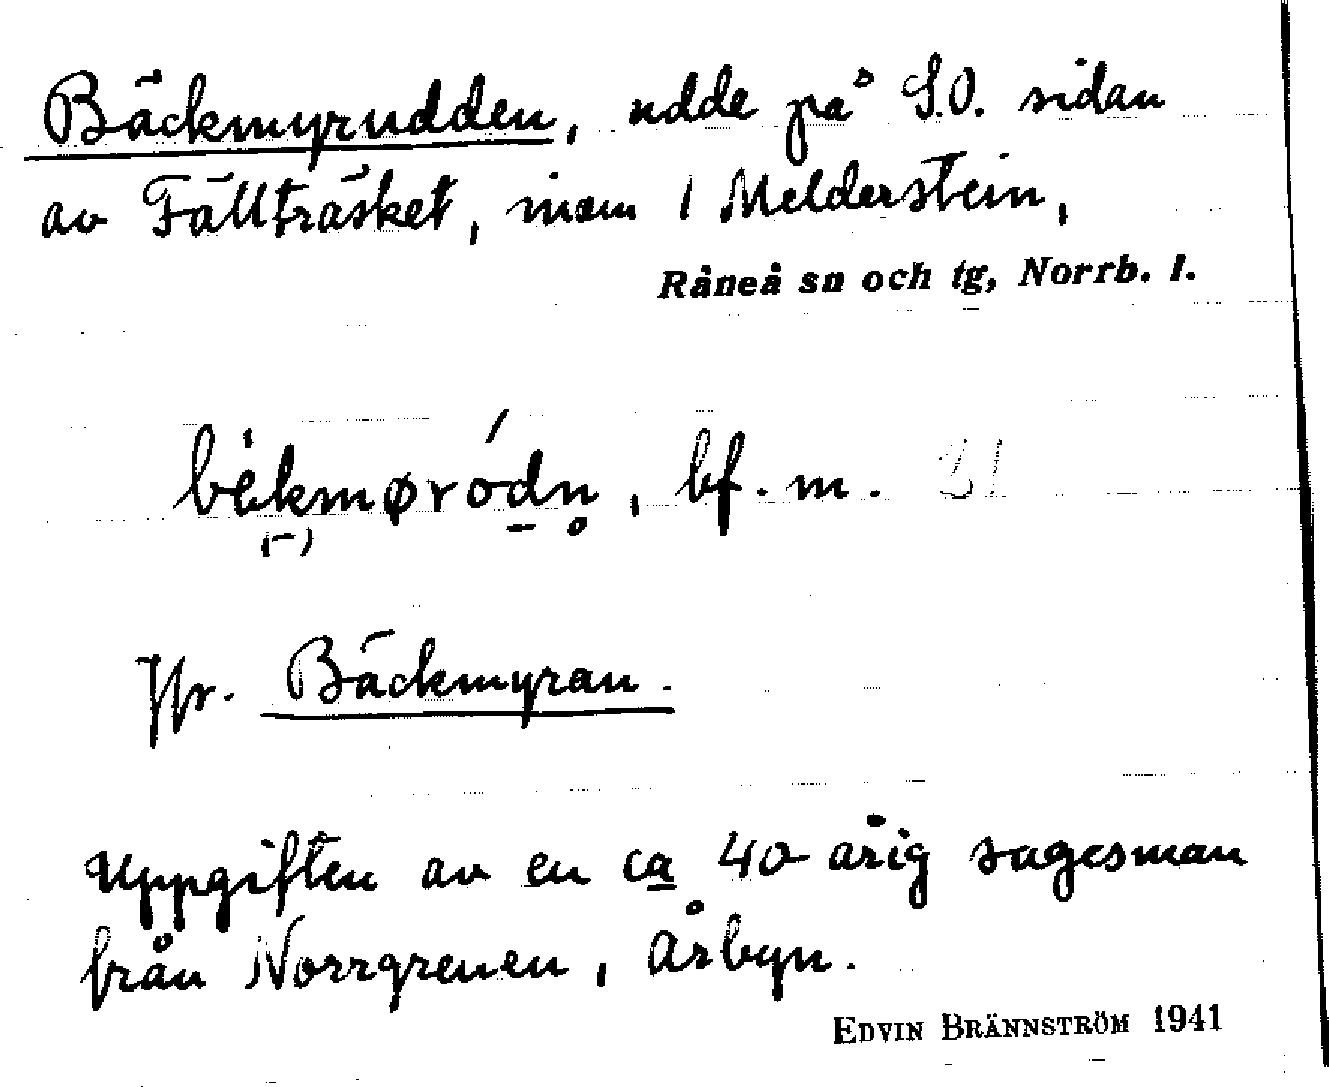 Bäckmyrudden, udde på S.O. sidan
av Fällträsket, inom 1 Melderstein,
Råneå sn och tg, Norrb. l.
bèkmøródn̥, bf. m. 31
Jfr. Bäckmyran.
Uppgiften av en ca 40-årig sagesman
från Norrgrenen, Årbyn.
EDVIN BRÄNNSTRÖM 1941